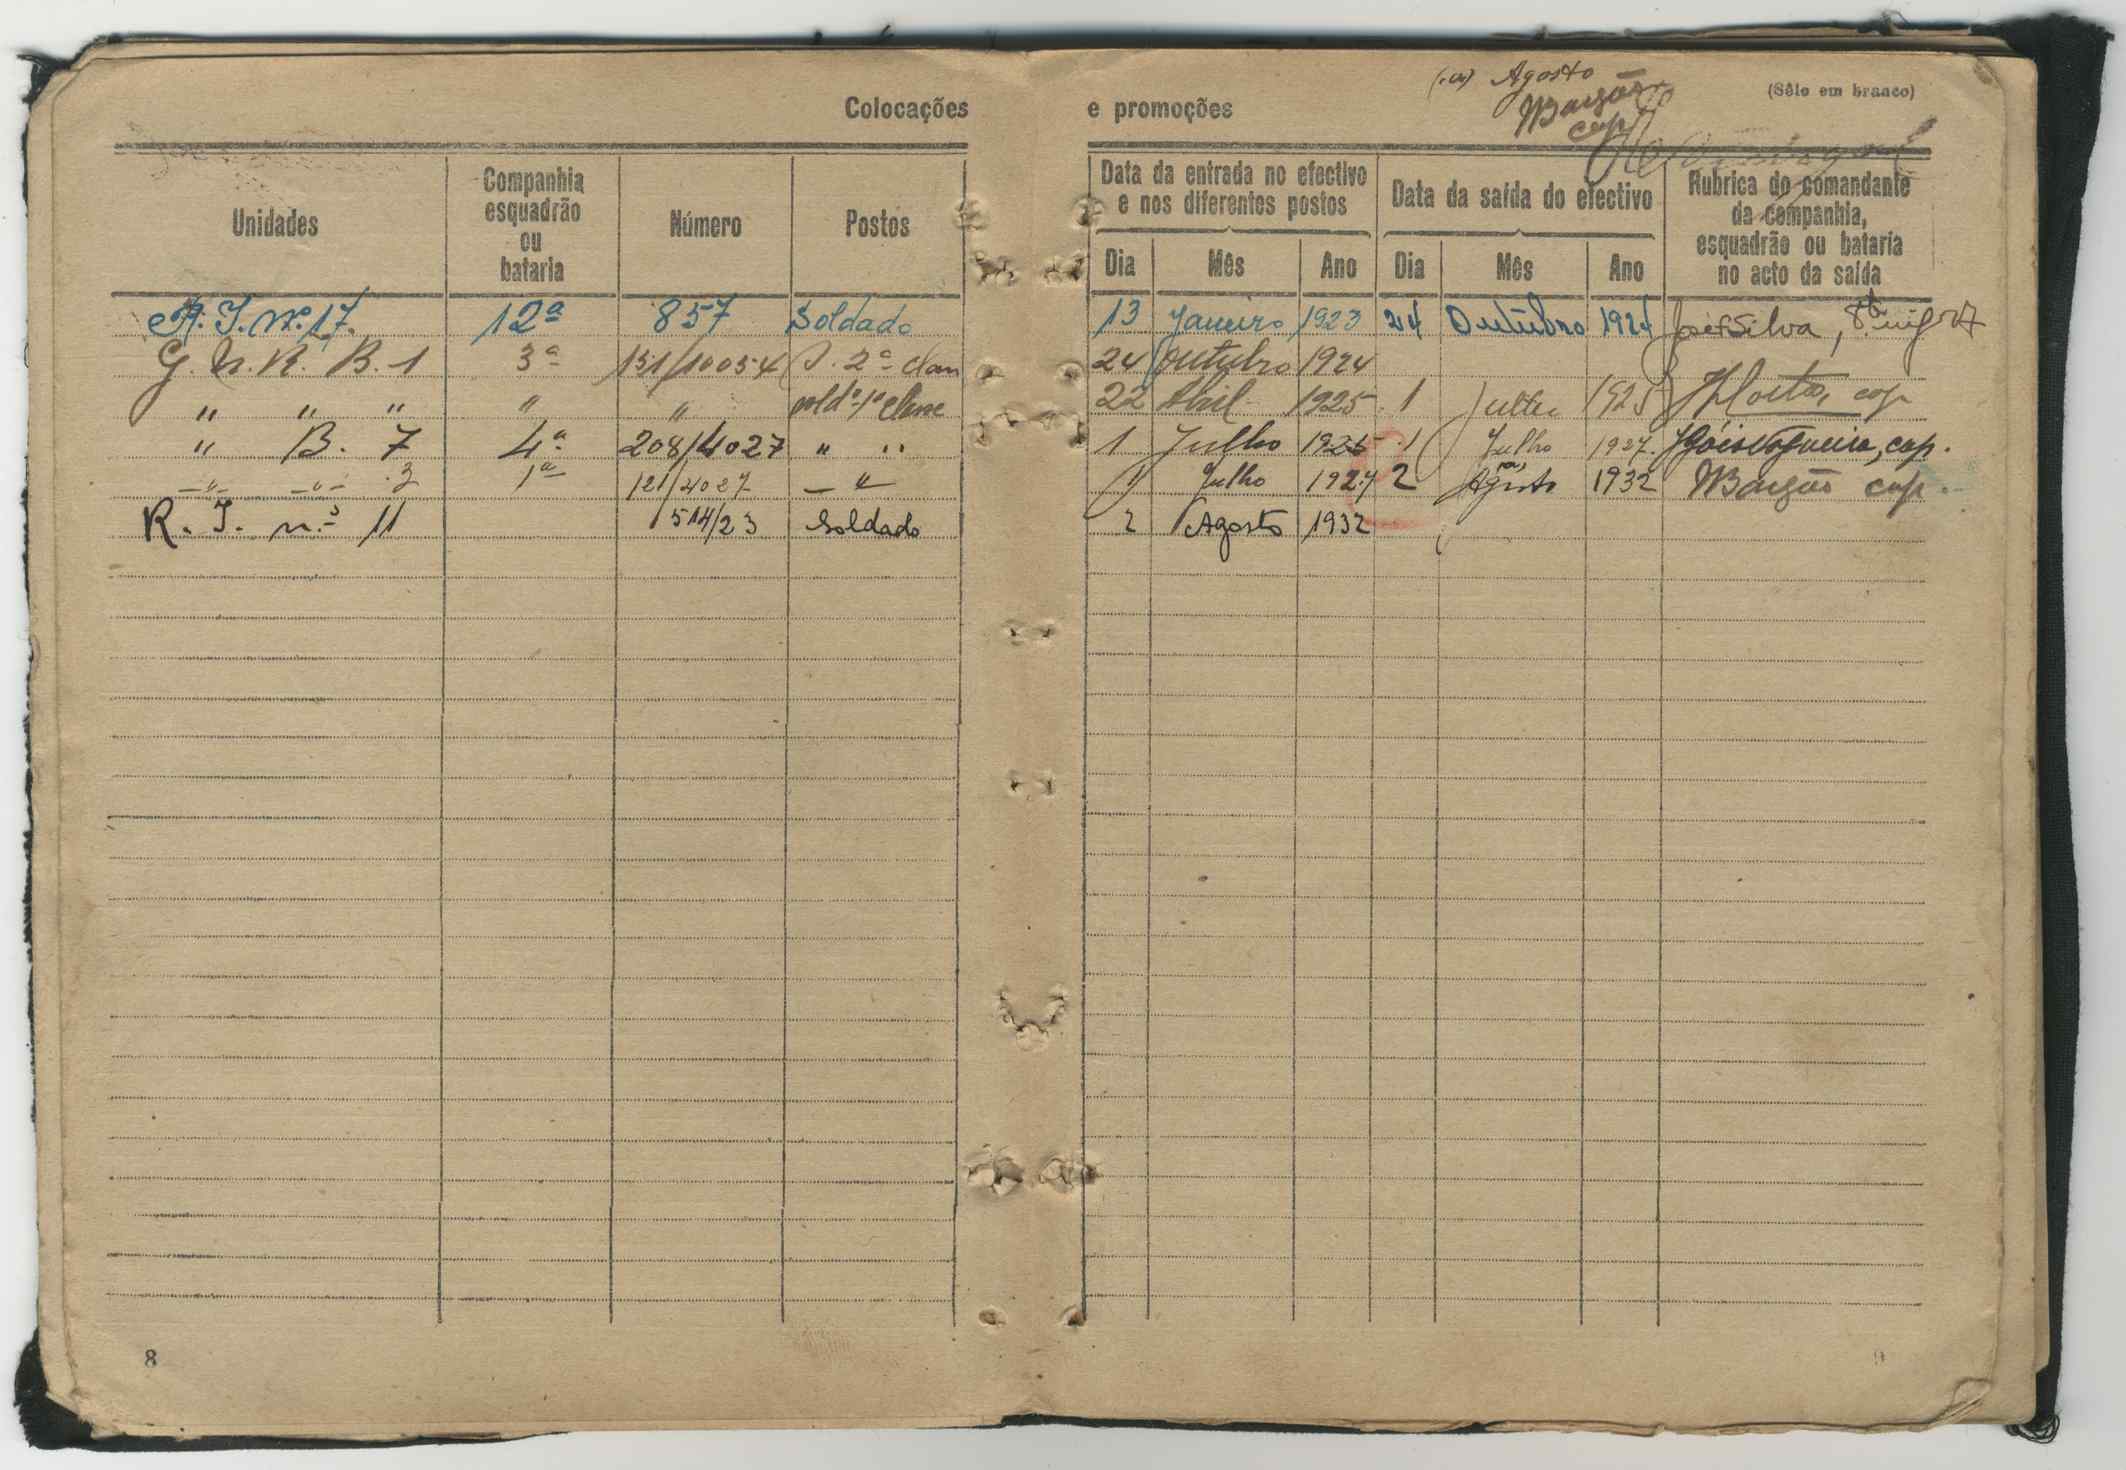 (a) Agosto
Colocações e promoções (Sêlo em branco)
Bargão
cap
Unidades Companhia esquadrão ou bataria Número Postos Data da entrada no efectivo e nos diferentes postos Data da saída do efectivo Rubrica do comandante da companhia, esquadrão ou bataria no acto da saída
Dia Mês Ano Dia Mês Ano
R. I. nº 17 12ª 857 Soldado 13 Janeiro 1923 24 Outubro 1924 Silva,
G. N. R. B. 1 3ª 151/10054 S. 2ª clas 24 Outubro 1924
" " " " " sold. 1ª classe 22 Abril 1925 1 Julho 1925 cap
" B. 7 4ª 208/4027 " " 1 Julho 1925 1 Julho 1927 Góis Nogueira, cap.
" " 3 1ª 121/4027 " 1 Julho 1927 2 (a) Agosto 1932 Bargão cap.
R. I. nº 11 514/23 Soldado 2 Agosto 1932
8
9